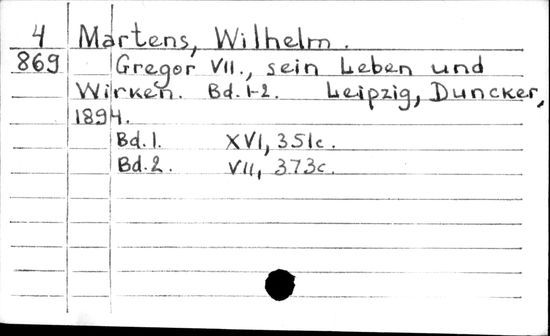 4 Martens, Wilhelm.
869 Gregor VII., sein Leben und
Wirken. Bd. 1-2. Leipzig, Duncker,
1894.
Bd. 1. XVI, 351c.
Bd. 2. VII, 373c.